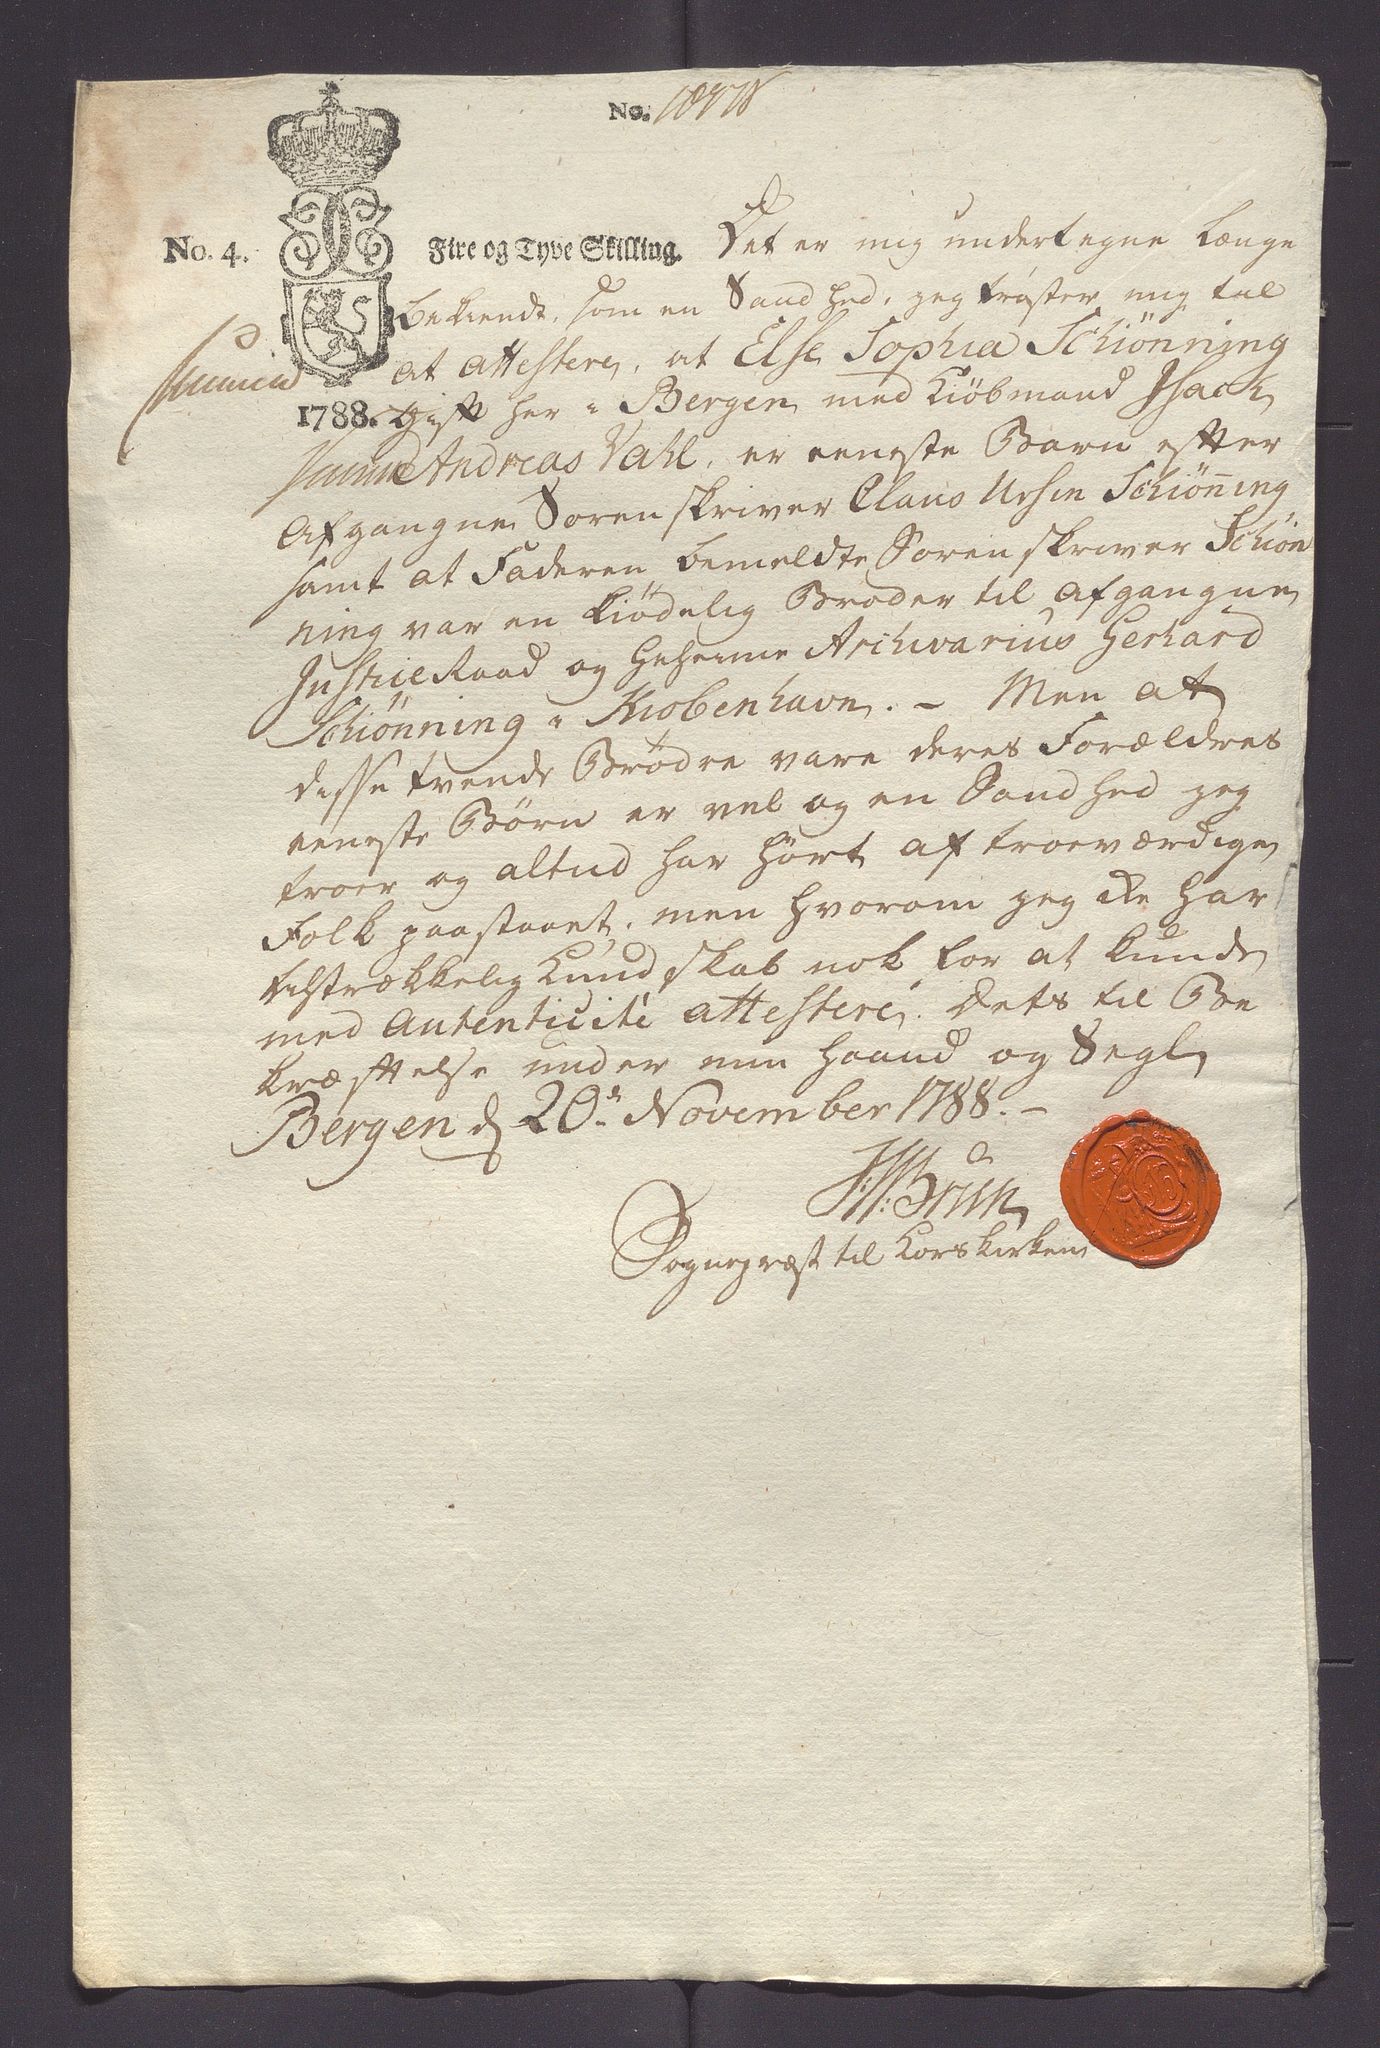 No. 10478
No. 4. Fire og Tyve Skilling. Det er mig undertegne længe
bekiendt, som en Sandhed, jeg trøster mig til
at attestere, at Else Sophia Schiönning
1788. gift her i Bergen med Kiöbmand Isach
Andreas Vahl, er eeneste Barn efter
Afgangne Sorenskriver Claus Ursin Schiöning
samt at Faderen bemeldte Sorenskriver Schiön
ning var en kiödelig Broder til afgangne
JustitzRaad og Geheime Archivarius Gerhard
Schiönning i Kiobenhavn. - Men at
disse tvende Brödre vare deres Forældres
eeneste Börn er vel og en Sandhed jeg
troer og altid har hört af troeværdige
Folk paastaaet, men hvorom jeg ikke har
tilstrækkelig Kundskab nok for at kunde
med Autenticité attestere. Dets til Be
kræftelse under min Haand og Segl,
Bergen d 20de November 1788. -
J: N: Brun
Sognepræst til Korskirken